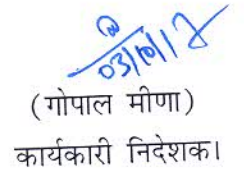 03/10/17
(गोपाल मीणा)
कार्यकारी निदेशक।